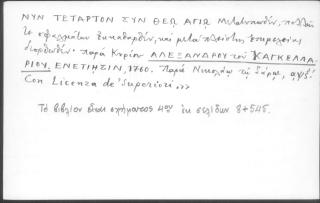 ΝΥΝ ΤΕΤΑΡΤΟΝ ΣΥΝ ΘΕΩ ΑΓΙΩ Μετατυπωθέν, πολλῶν
τε σφαλμάτων ἐκκαθαρθέν, καὶ μετὰ πλείστης ἐπιμελείας
διορθωθέν. παρὰ Κυρίου ΑΛΕΞΑΝΔΡΟΥ τοῦ ΚΑΓΚΕΛΛΑ-
ΡΙΟΥ. ΕΝΕΤΙΗΣΙΝ, 1760. Παρὰ Νικολάῳ τῷ Σάρῳ, αψξ΄.
Con Licenza de' Superiori.,,
Τὸ βιβλίον εἶναι σχήματος 4ου ἐκ σελίδων 8+545.